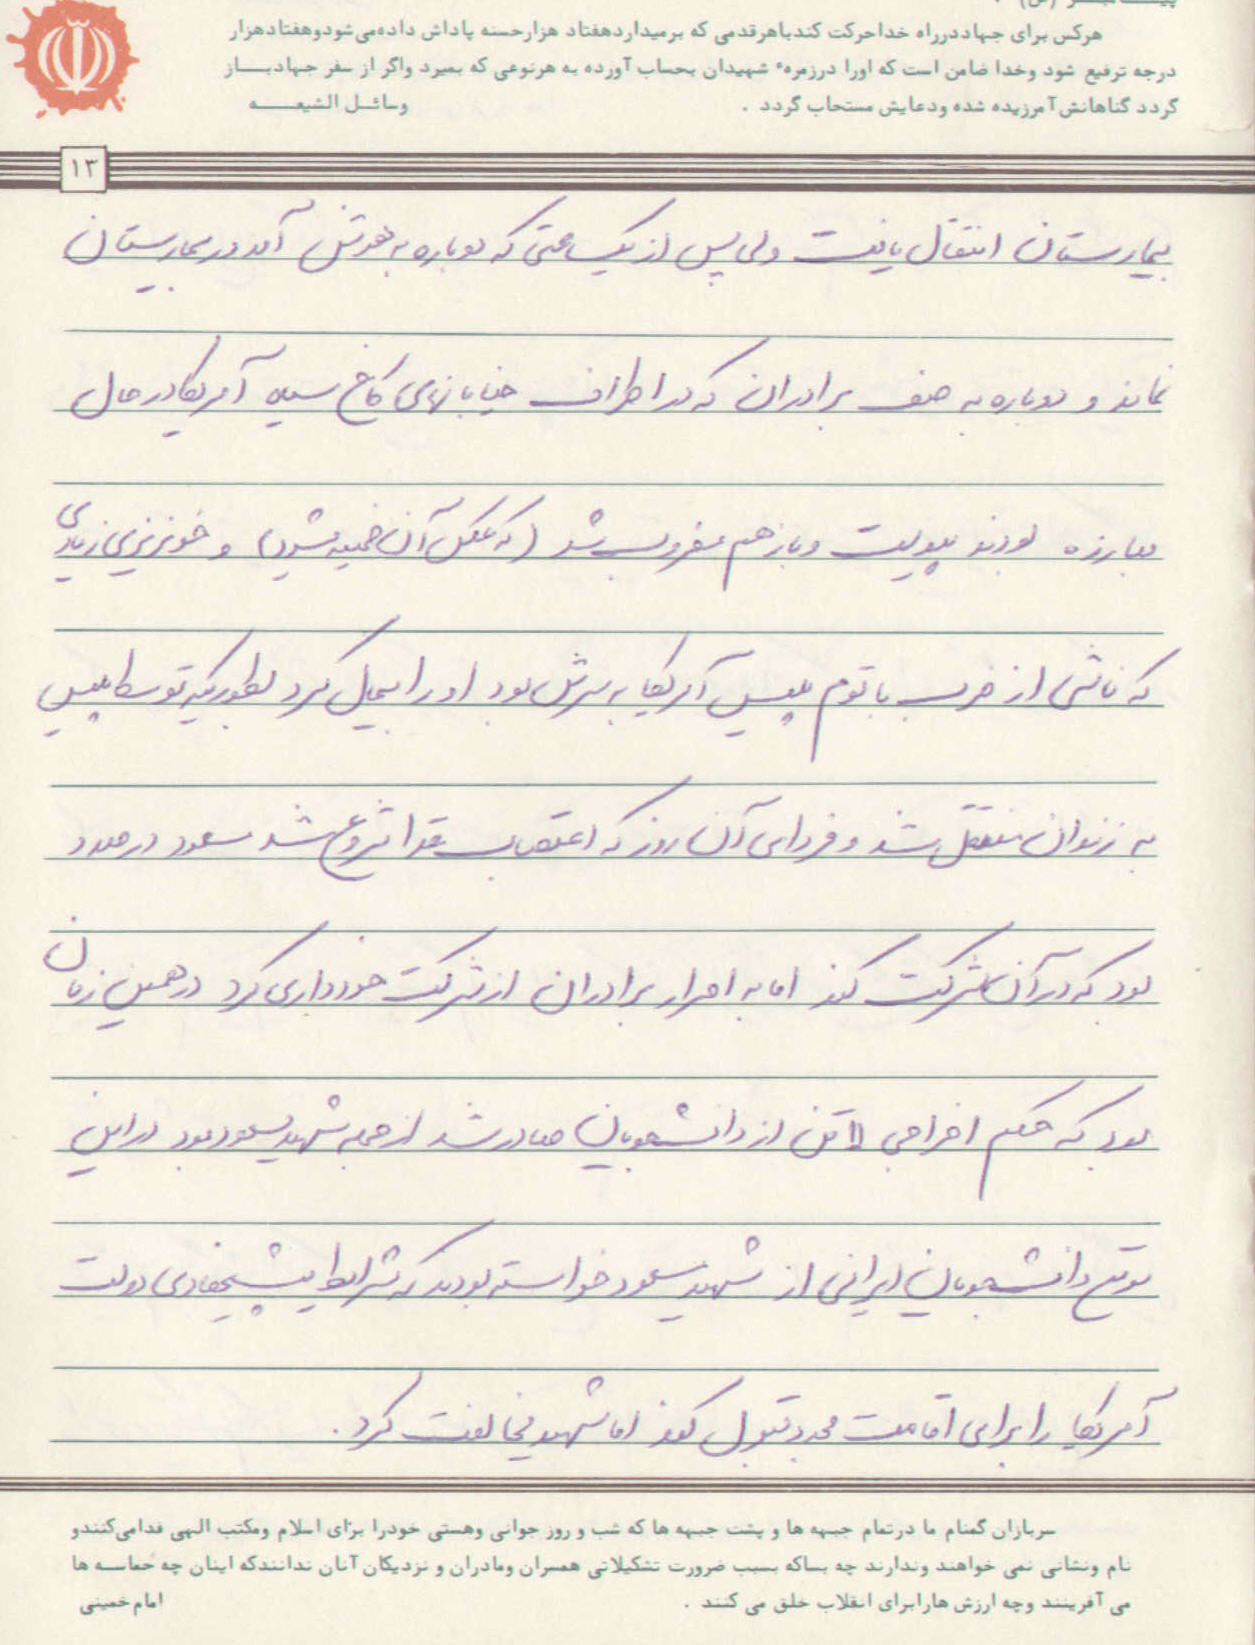 پیامبر (ص) :
هرکس برای جهاد درراه خدا حرکت کند باهرقدمی که برمیدارد هفتاد هزار حسنه پاداش داده می شود و هفتاد هزار
درجه ترفیع شود وخدا ضامن است که اورا درزمره ٔ شهیدان بحساب آورده به هرنوعی که بمیرد واگر از سفر جهاد بـاز
گردد گناهانش آمرزیده شده ودعایش مستجاب گردد . وسائـل الشیعـه
۱۳
بیمارستان انتقال یافت ولی پس از یکساعتی که دوباره بهوش آمد در بیمارستان
نماند و دوباره به صف برادران که در اطراف خیابانهای کاخ سیاه آمریکا در حال
مبارزه بودند پیوست و بازهم مضروب شد (که عکس آن ضمیمه میشود) و خونریزی زیادی
که ناشی از ضرب باتوم پلیس آمریکا به سرش بود او را بیحال کرد بطوریکه توسط پلیس
به زندان منتقل شد و فردای آن روز که اعتصاب غذا شروع شد مسعود درصدد
بود که در آن شرکت کند اما به اصرار برادران از شرکت خودداری کرد در همین زمان
بود که حکم اخراجی ۱۱ تن از دانشجویان صادر شد از جمله شهید مسعود بود در این
موقع دانشجویان ایرانی از شهید مسعود خواسته بودند که شرایط پیشنهادی دولت
آمریکا را برای اقامت مجدد قبول کند اما شهید مخالفت کرد .
سربازان گمنام ما درتمام جبهه ها و پشت جبهه ها که شب و روز جوانی وهستی خودرا برای اسلام ومکتب الهی فدامی کنندو
نام ونشانی نمی خواهند وندارند چه بساکه بسبب ضرورت تشکیلاتی همسران ومادران و نزدیکان آنان ندانندکه اینان چه حماسـه ها
می آفرینند وچه ارزش هارابرای انقلاب خلق می کنند . امام خمینی